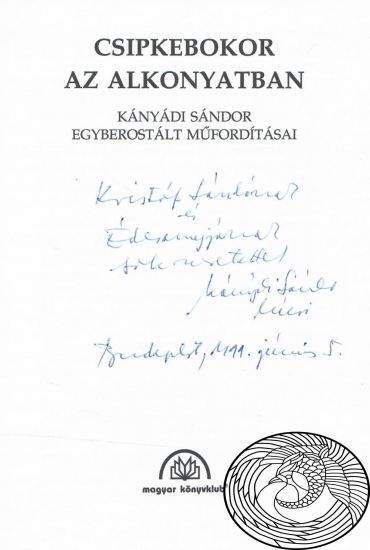 CSIPKEBOKOR
AZ ALKONYATBAN
KÁNYÁDI SÁNDOR
EGYBEROSTÁLT MŰFORDÍTÁSAI
Kristóf Sándornak
és
Édesanyjának
sok szeretettel
Kányádi Sándor
Budapest, 1999. június 5.
magyar könyvklub